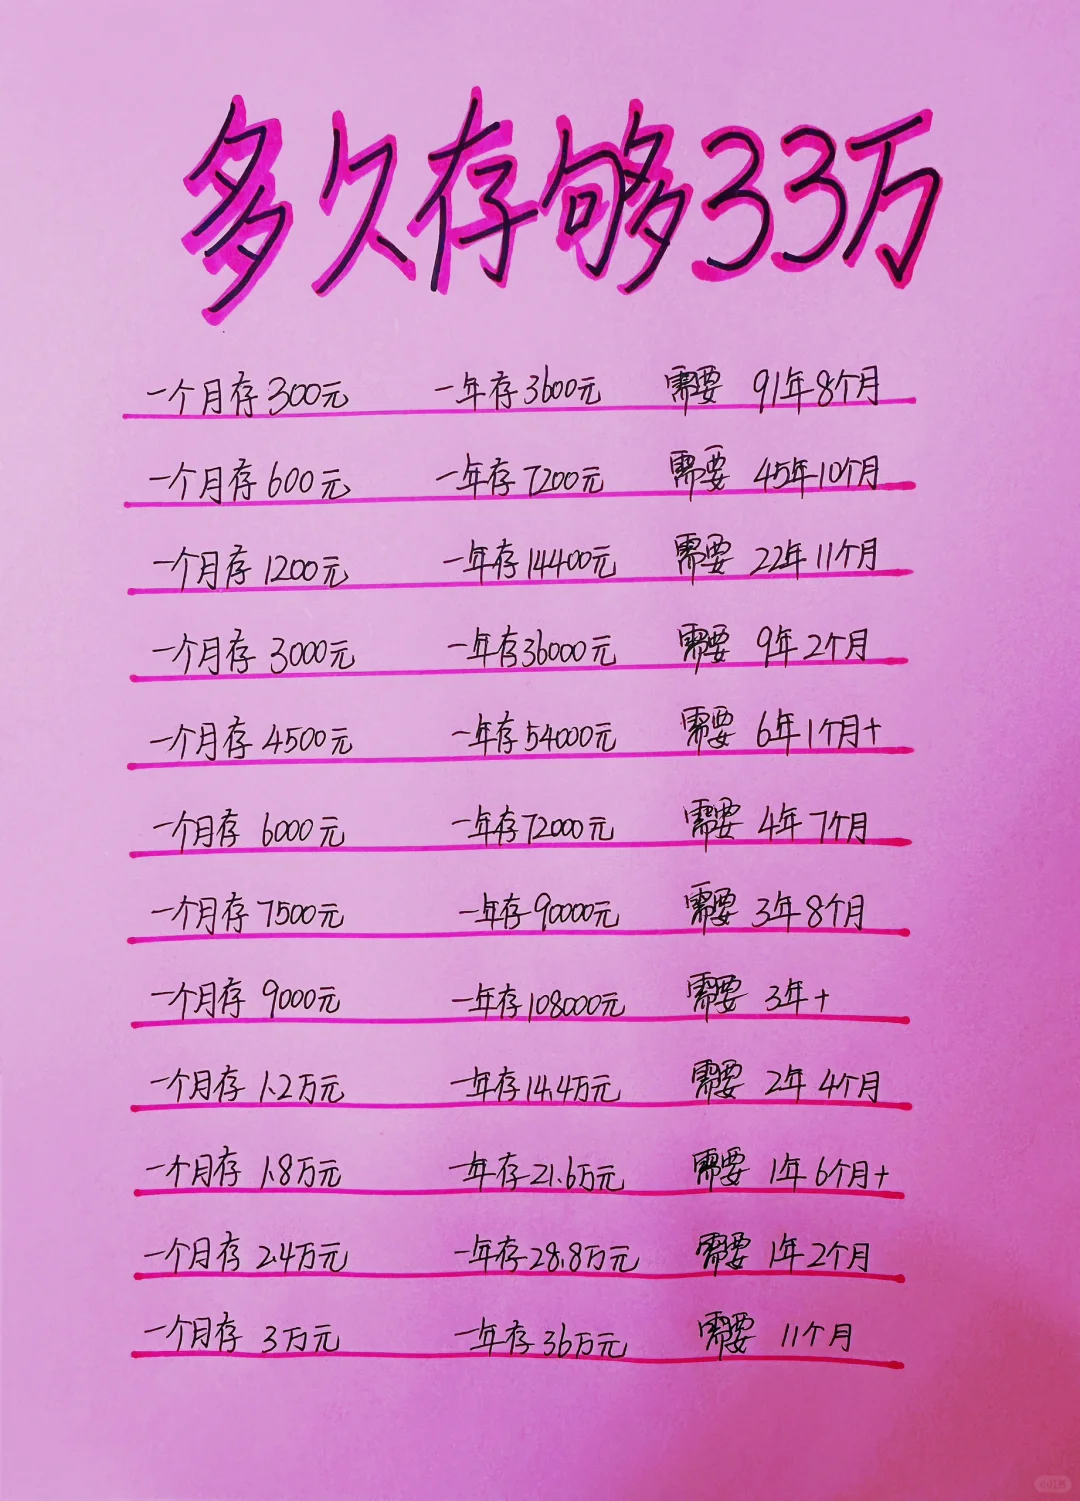 多久存够33万
一个月存300元 一年存3600元 需要 91年8个月
一个月存600元 一年存7200元 需要 45年10个月
一个月存1200元 一年存14400元 需要 22年11个月
一个月存3000元 一年存36000元 需要 9年2个月
一个月存4500元 一年存54000元 需要 6年1个月+
一个月存6000元 一年存72000元 需要 4年7个月
一个月存7500元 一年存90000元 需要 3年8个月
一个月存9000元 一年存108000元 需要 3年+
一个月存1.2万元 一年存14.4万元 需要 2年4个月
一个月存1.8万元 一年存21.6万元 需要 1年6个月+
一个月存2.4万元 一年存28.8万元 需要 1年2个月
一个月存3万元 一年存36万元 需要 11个月